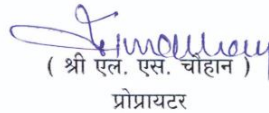 ( श्री एल. एस. चौहान )
प्रोप्रायटर